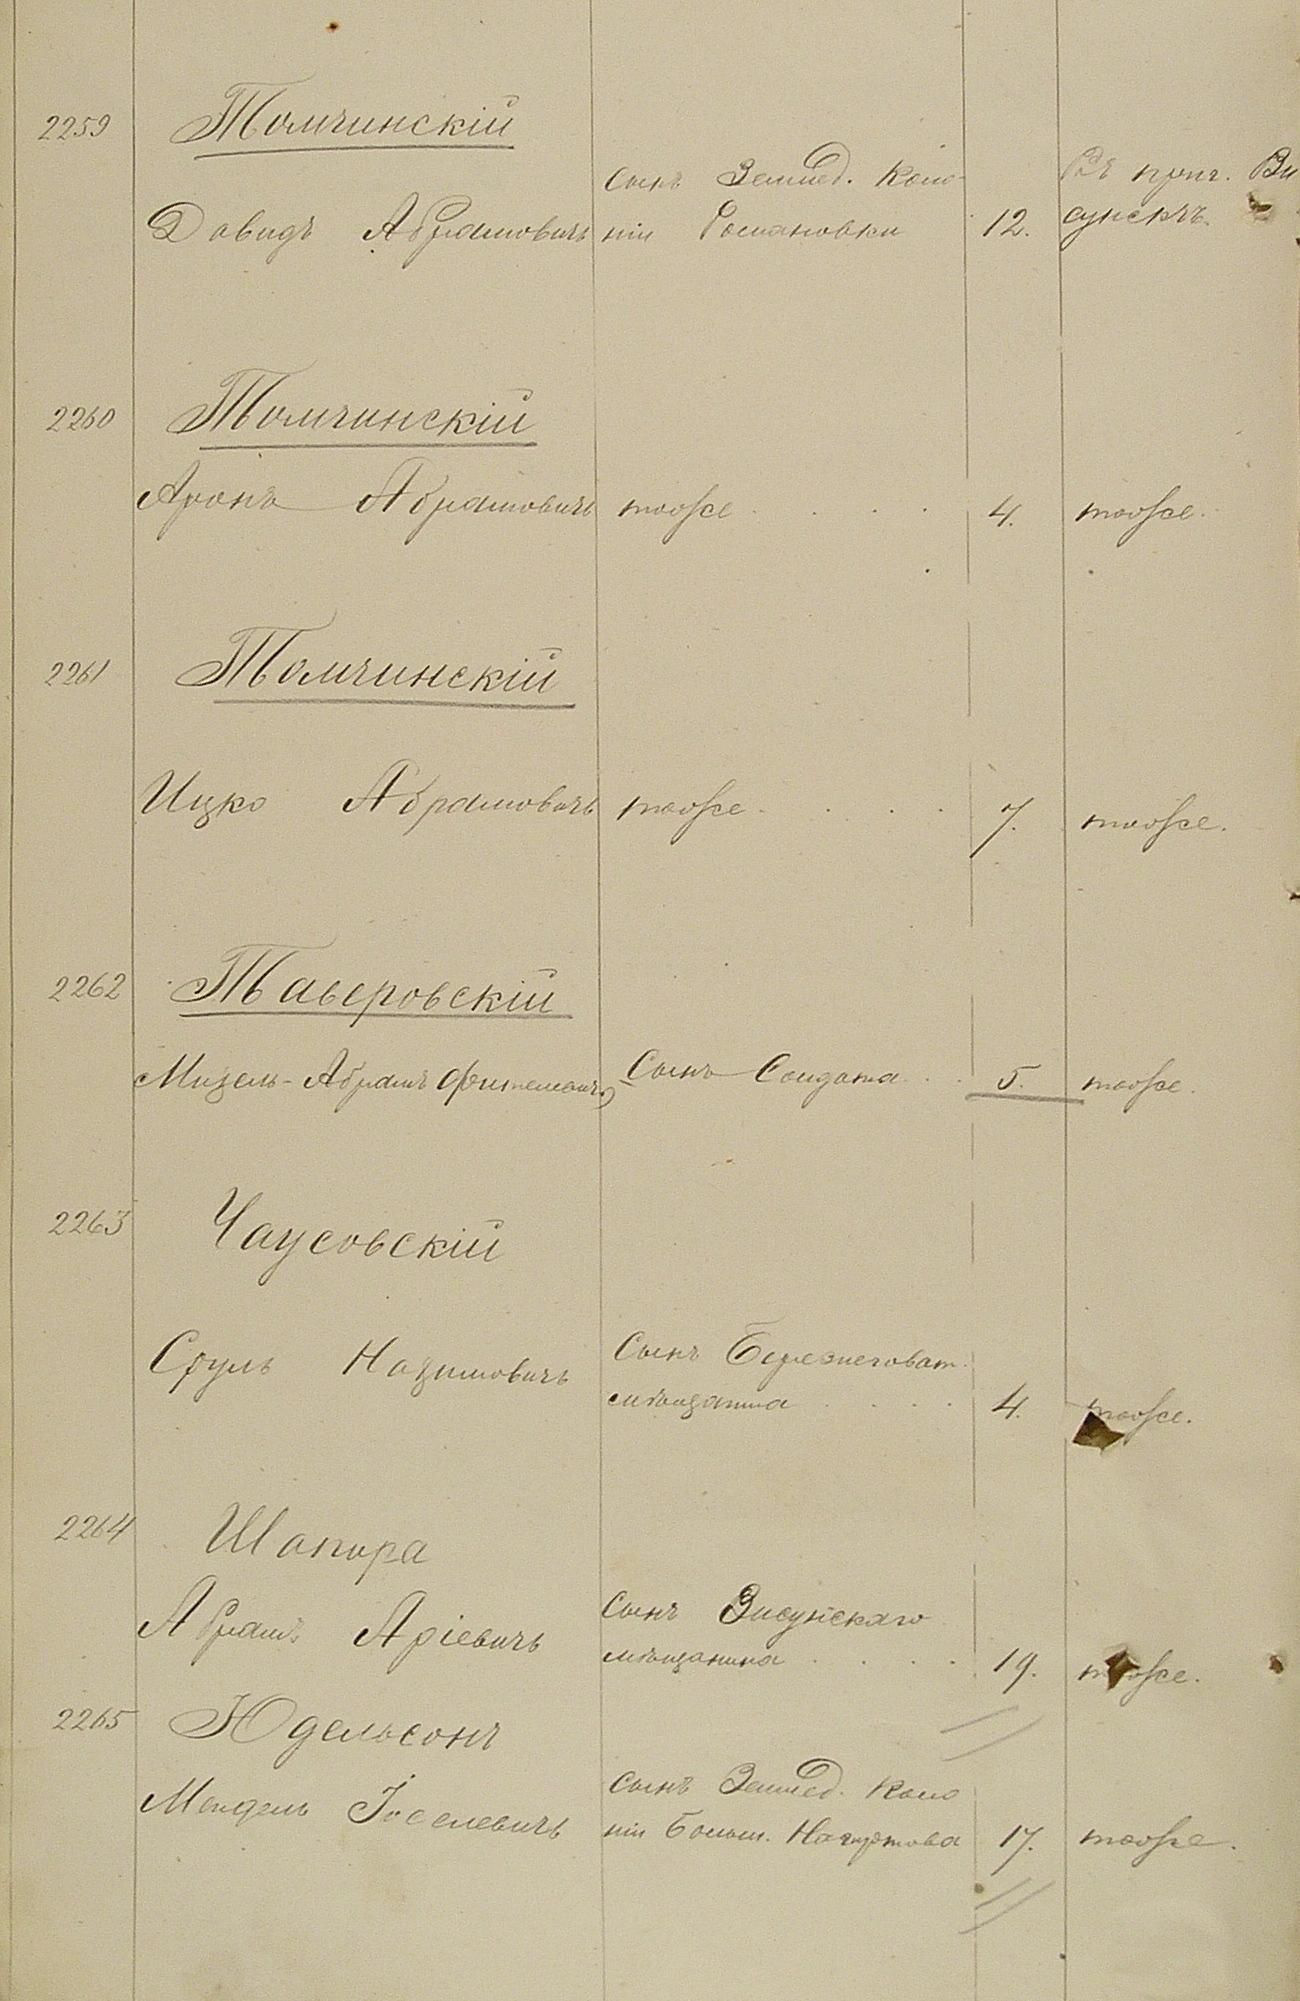 2259 Томчинскій
Давидъ Абрамовичъ
сынъ Землед. Коло-
ніи Романовки 12.
Въ прич. Ви
сунскъ.
2260 Томчинскій
Аронъ Абрамовичъ тоже . . . . 4. тоже.
2261 Томчинскій
Ицко Абрамовичъ тоже . . . . 7. тоже.
2262 Таверовскій
Абрамъ
Сынъ Солдата . . 5. тоже.
2263 Чаусовскій
Сруль Нахимовичъ
Сынъ Березнеговат.
мѣщанина . . . . 4. тоже.
2264 Шапира
Абрамъ Аріевичъ
Сынъ Висунскаго
мѣщанина . . . . 19. тоже.
2265 Юдельсонъ
Мендель Іоселевичъ
сынъ Землед. Коло
ніи Больш. Нагартова 17. тоже.